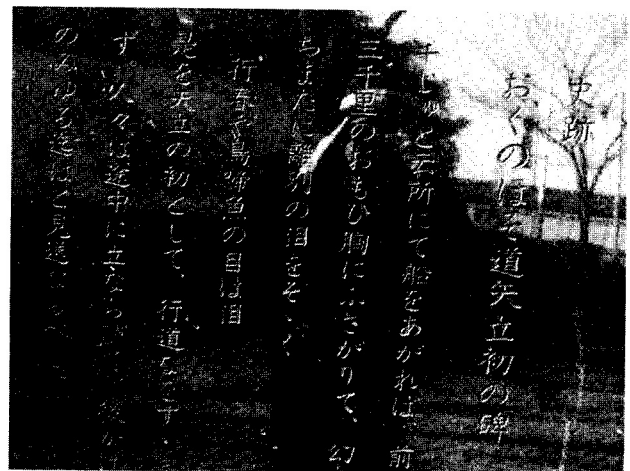 史跡
おくのほそ道矢立初の碑
千じゆと云所にて船をあがれば、前
三千里のおもひ胸にふさがりて、幻
ちまたに離別の泪をそゝぐ
行春や鳥啼魚の目は泪
是を矢立の初として、行道なをすゝ
ず。人々は途中に立ならびて、後か
のみゆる迄はと見送